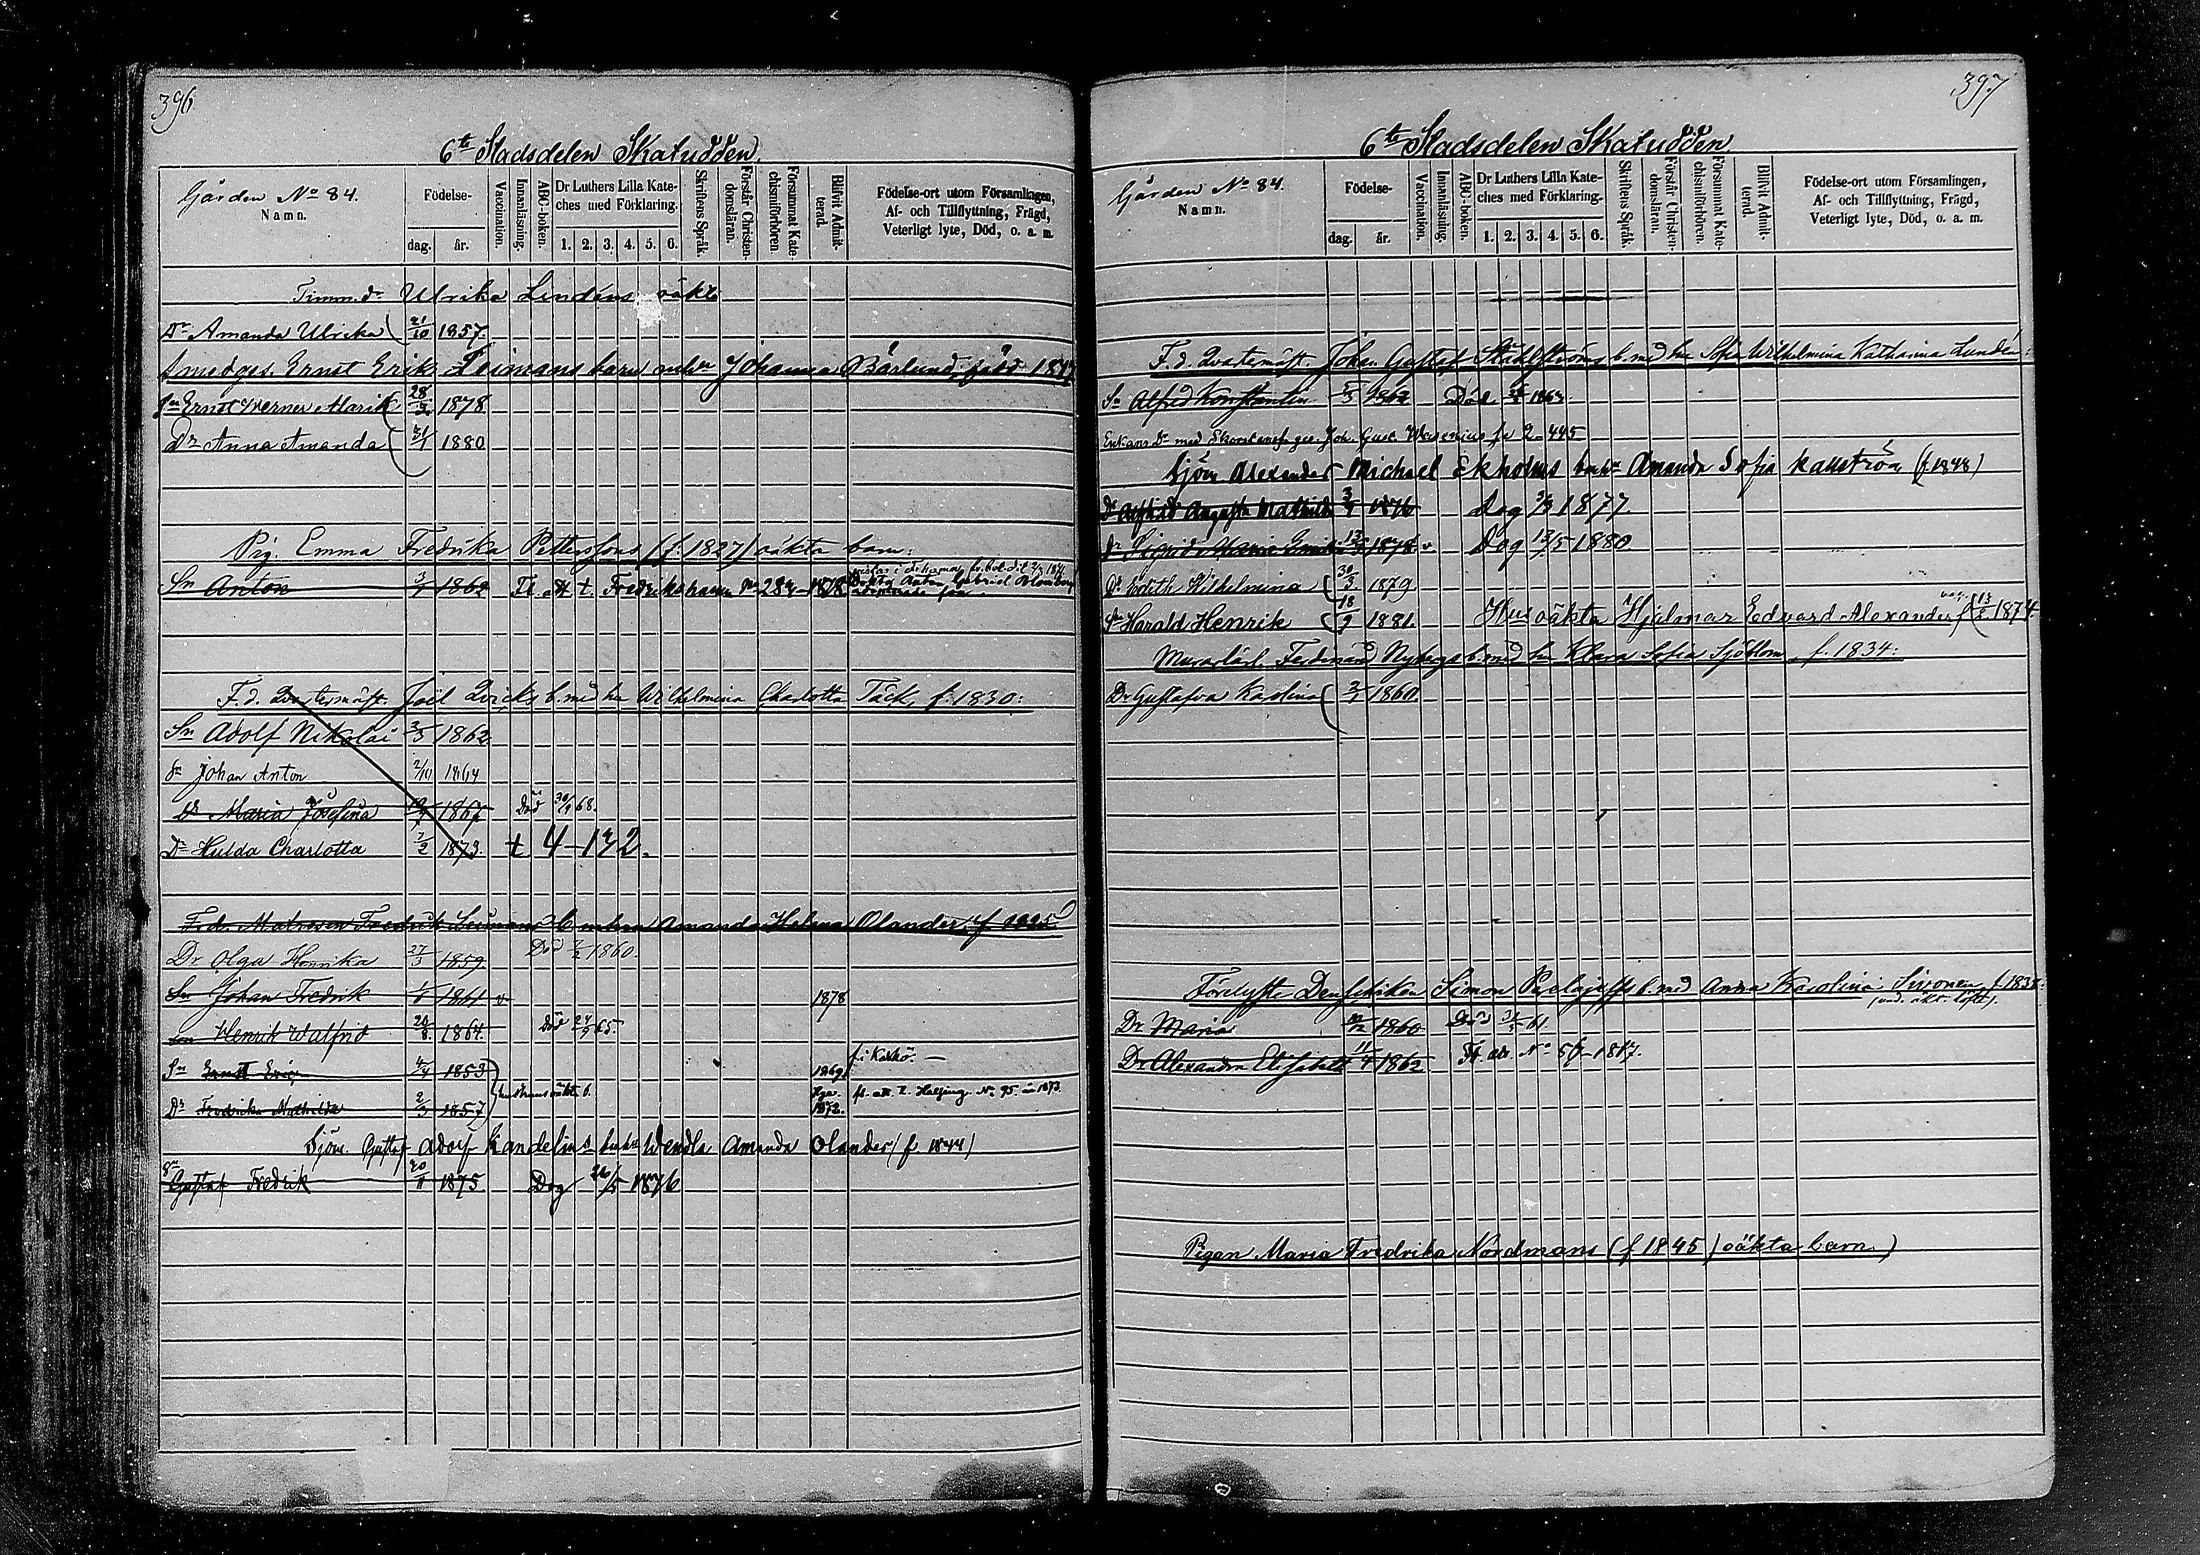 396
6te Stadsdelen Skatudden.
Gården No 84.
Namn.
Födelse-
dag. år.
Vaccination.
Innanläsning.
ABC-boken.
Dr Luthers Lilla Kate-
ches med Förklaring.
1. 2. 3. 4. 5. 6.
Skriftens Språk.
Förstår Christen-
domsläran.
Försummat Kate-
chismiförhören.
Blifvit Admit-
terad.
Födelse-ort utom Församlingen,
Af- och Tillflyttning, Frägd,
Veterligt lyte, Död, o. a. m.
Ulrika Lindéns oäkta
Dr Amanda Ulrika 21/10 1857.
Smedges. Ernst Erik Leimans barn m. hu Johanna Bärlund, född
Sn Ernst Werner Alarik 1878
Dr Anna Amanda 1880
Pig. Emma Fredrika Petterssons (f. 1827) oäkta barn:
Sn Anton 1862 Fl. att. t. Fredrikshamn No 284 1878
F. d. b. med hu Wilhelmina Charlotta Täck, f. 1830:
Sn Adolf Nikolai 1862
Sn Johan Anton 2/10 1864
Dr Maria Josefina 1867 Död 68.
Dr Hulda Charlotta 1873. t. 4-132.
F. d. Matrosen Fredrik Leimans b. m hu Amanda Helena Olander, f
Dr Olga Henrika 27/3 1859. Död 1860.
Sn Johan Fredrik 1861 v 1878
Son Henrik Walfrid 26/8. 1864. Död 65
f. i Karkö. —
Sn Ernst Eric 1853 1869
Dr Fredrika Mathilda 2/3 1857 hustruns oäkta b. 1872. fl. att. t. Helsing. No 95 1873.
Sjöm. Gustaf Adolf Kandelins b. m hu Wendla Amanda Olander (f 1844)
Sn Gustaf Fredrik 20/11 1875 Dog 26/5 1876
397
6te Stadsdelen Skatudden
Gården No 84.
Namn.
Födelse-
dag. år.
Vaccination.
Innanläsning.
ABC-boken.
Dr Luthers Lilla Kate-
ches med Förklaring.
1. 2. 3. 4. 5. 6.
Skriftens Språk.
Förstår Christen-
domsläran.
Försummat Kate-
chismiförhören.
Blifvit Admit-
terad.
Födelse-ort utom Församlingen,
Af- och Tillflyttning, Frägd,
Veterligt lyte, Död, o. a. m.
F. d. Johan Gustaf Ståhlströms b. med hu Sofia Wilhelmina Katharina Lundén:
Sn Alfred Konstantin 1862 Död
med Joh. Gust. Wasenius se 2-445
Sjöm Alexander Michael Ekholms b m hu Amanda Sofia (f. 1848)
Dr Augusta Mathilda 1876 Dog 1877.
Dr Sigrid Maria 1878 v Dog 1880
Dr Edith Wilhelmina 30/3 1879
Sn Harald Henrik 18/9 1881. Hus oäkta Hjalmar Edvard Alexander f 1874.
Murarlärl. Ferdinand Nybergs b. med hu Klara Sofia Sjöblom, f. 1834:
Dr Gustafva Karolina 1860.
Simon b. med Anna Karolina
Dr Maria 1860 Död 61.
Dr Alexandra Elisabeth 11/4 1862
Pigan Maria Fredrika Nordmans (f 1845) oäkta barn.)